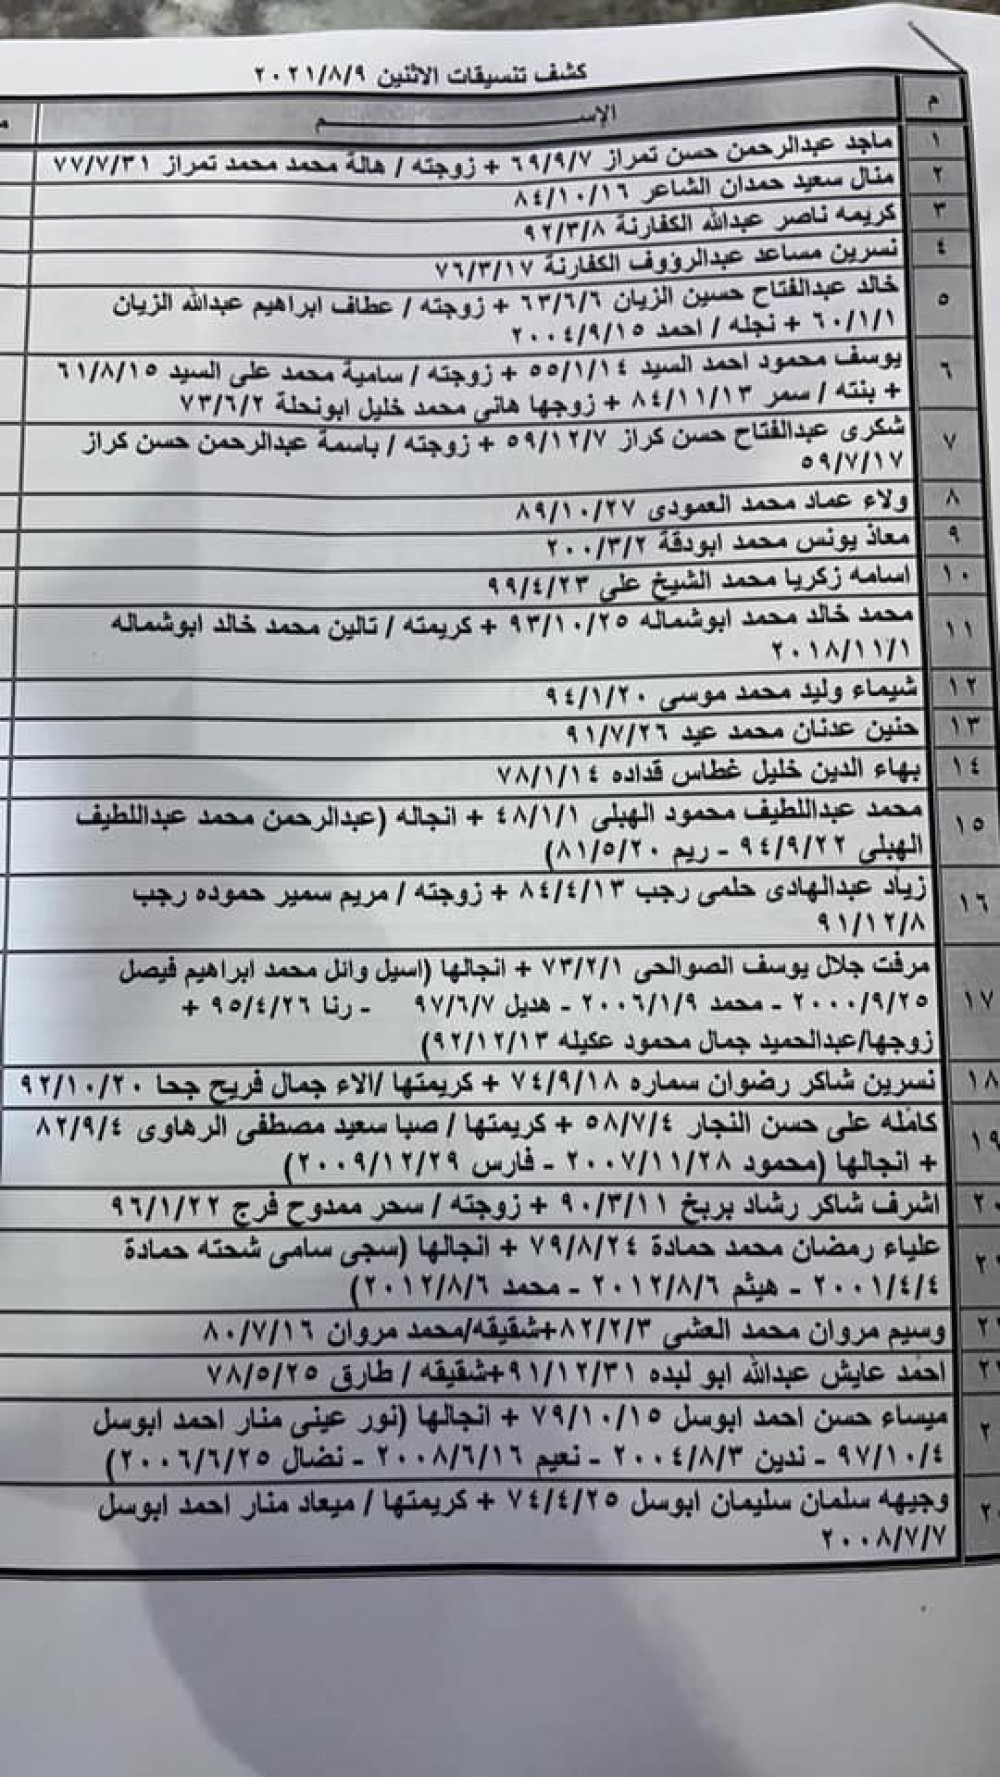 كشف تنسيقات الاثنين ٢٠٢١/٨/٩
م الإســـــــــــم م
١ ماجد عبدالرحمن حسن تمراز ٦٩/٩/٧ + زوجته / هالة محمد محمد تمراز ٧٧/٧/٣١
٢ منال سعيد حمدان الشاعر ٨٤/١٠/١٦
٣ كريمه ناصر عبدالله الكفارنة ٩٢/٣/٨
٤ نسرين مساعد عبدالرؤوف الكفارنة ٧٦/٣/١٧
٥ خالد عبدالفتاح حسين الزيان ٦٣/٦/٦ + زوجته / عطاف ابراهيم عبدالله الزيان
٦٠/١/١ + نجله / احمد ٢٠٠٤/٩/١٥
٦ يوسف محمود احمد السيد ٥٥/١/١٤ + زوجته / سامية محمد على السيد ٦١/٨/١٥
+ بنته / سمر ٨٤/١١/١٣ + زوجها هاني محمد خليل ابونحلة ٧٣/٦/٢
٧ شكرى عبدالفتاح حسن كراز ٥٩/١٢/٧ + زوجته / باسمة عبدالرحمن حسن كراز
٥٩/٧/١٧
٨ ولاء عماد محمد العمودى ٨٩/١٠/٢٧
٩ معاذ يونس محمد ابودقة ٢٠٠/٣/٢
١٠ اسامه زكريا محمد الشيخ علي ٩٩/٤/٢٣
١١ محمد خالد محمد ابوشماله ٩٣/١٠/٢٥ + كريمته / تالين محمد خالد ابوشماله
٢٠١٨/١١/١
١٢ شيماء وليد محمد موسي ٩٤/١/٢٠
١٣ حنين عدنان محمد عيد ٩١/٧/٢٦
١٤ بهاء الدين خليل غطاس قداده ٧٨/١/١٤
١٥ محمد عبداللطيف محمود الهبلى ٤٨/١/١ + انجاله (عبدالرحمن محمد عبداللطيف
الهبلى ٩٤/٩/٢٢ - ريم ٨١/٥/٢٠)
١٦ زياد عبدالهادى حلمى رجب ٨٤/٤/١٣ + زوجته / مريم سمير حموده رجب
٩١/١٢/٨
١٧ مرفت جلال يوسف الصوالحى ٧٣/٢/١ + انجالها (اسيل وائل محمد ابراهيم فيصل
٢٠٠٠/٩/٢٥ - محمد ٢٠٠٦/١/٩ - هديل ٩٧/٦/٧ - رنا ٩٥/٤/٢٦ +
زوجها/عبدالحميد جمال محمود عكيله ٩٢/١٢/١٣)
١٨ نسرين شاكر رضوان سماره ٧٤/٩/١٨ + كريمتها /الاء جمال فريح جحا ٩٢/١٠/٢٠
١٩ كامله على حسن النجار ٥٨/٧/٤ + كريمتها / صبا سعيد مصطفى الرهاوى ٨٢/٩/٤
+ انجالها (محمود ٢٠٠٧/١١/٢٨ - فارس ٢٠٠٩/١٢/٢٩)
اشرف شاكر رشاد بربخ ٩٠/٣/١١ + زوجته / سحر ممدوح فرج ٩٦/١/٢٢
علياء رمضان محمد حمادة ٧٩/٨/٢٤ + انجالها (سجى سامى شحته حمادة
٢٠٠١/٤/٤ - هيثم ٢٠١٢/٨/٦ - محمد ٢٠١٢/٨/٦)
وسيم مروان محمد العشي ٨٢/٢/٣+شقيقه/محمد مروان ٨٠/٧/١٦
احمد عايش عبدالله ابو لبده ٩١/١٢/٣١+شقيقه / طارق ٧٨/٥/٢٥
ميساء حسن احمد ابوسل ٧٩/١٠/١٥ + انجالها (نور عينى منار احمد ابوسل
٩٧/١٠/٤ - ندين ٢٠٠٤/٨/٣ - نعيم ٢٠٠٨/٦/١٦ - نضال ٢٠٠٦/٦/٢٥)
وجيهه سلمان سليمان ابوسل ٧٤/٤/٢٥ + كريمتها / ميعاد منار احمد ابوسل
٢٠٠٨/٧/٧